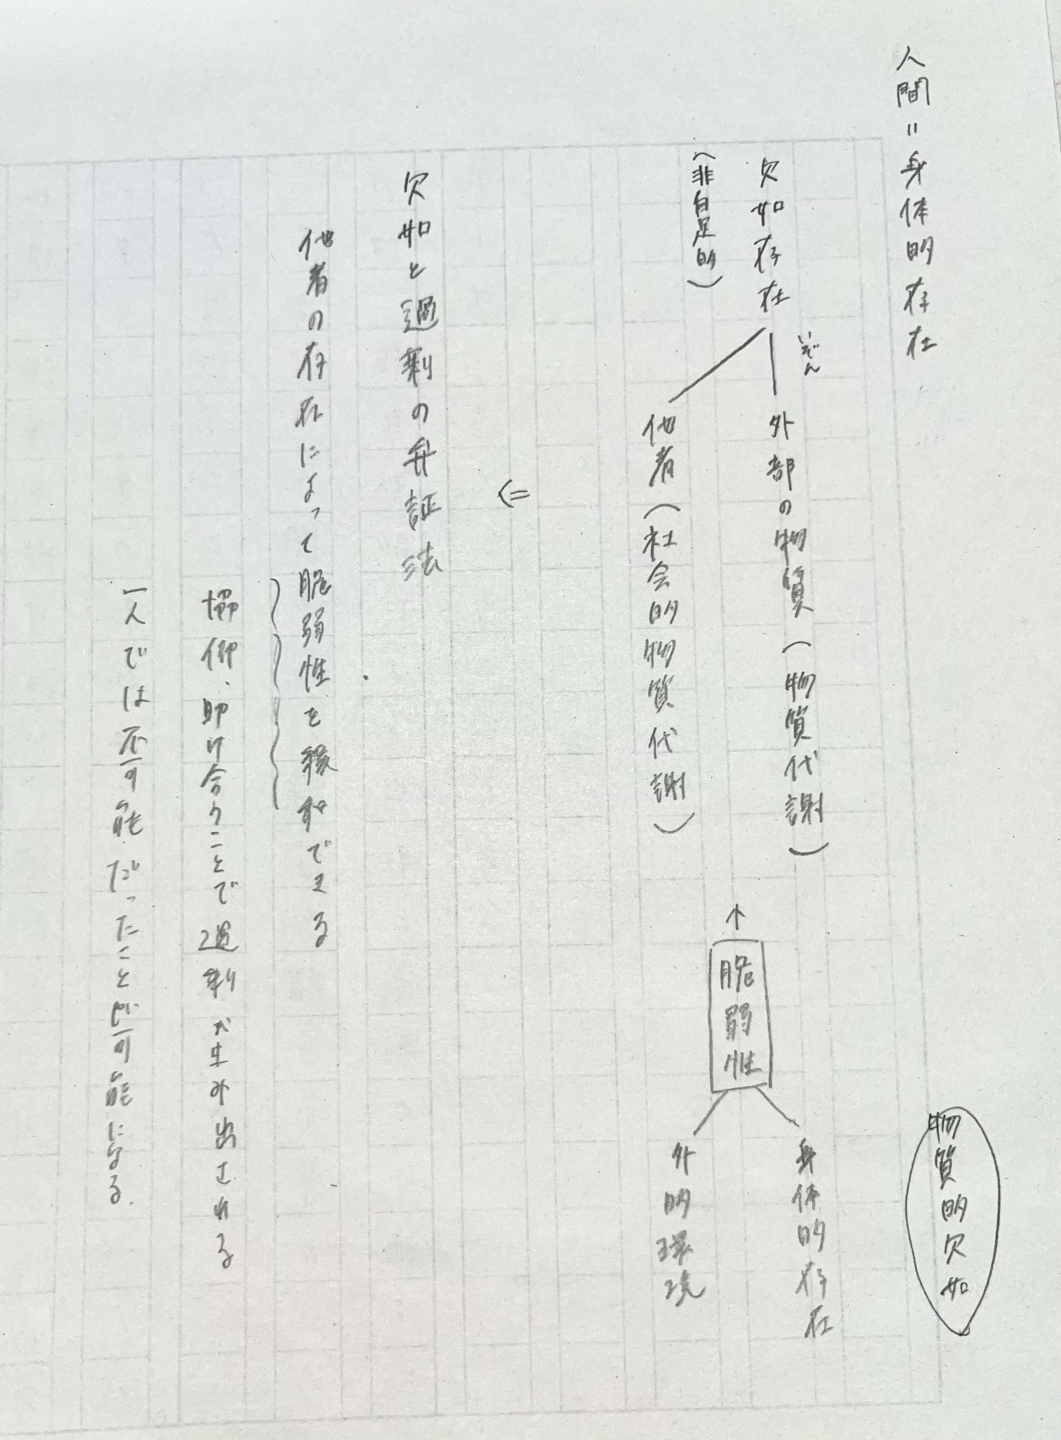 人間=身体的存在
物質的欠如
欠如存在
(非自足的)
いぞん
外部の物質(物質代謝)
他者(社会的物質代謝)
↑
脆弱性
身体的存在
外的環境
⇐
欠如と過剰の弁証法
他者の存在によって脆弱性を緩和できる
協働、助け合うことで過剰が生み出される
一人では不可能だったことが可能になる.